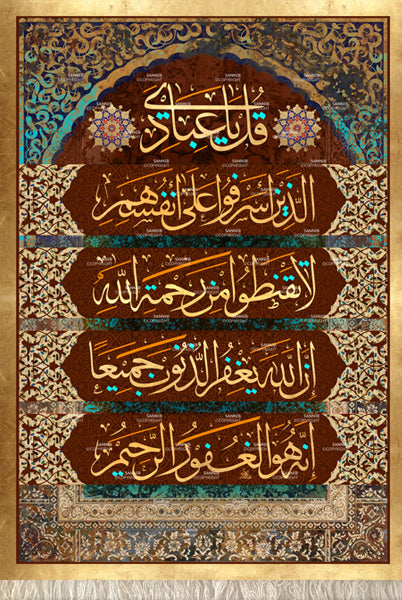 قُلْ يَا عِبَادِيَ
الَّذِينَ أَسْرَفُوا عَلَى أَنفُسِهِمْ
لَا تَقْنَطُوا مِن رَّحْمَةِ اللَّهِ
إِنَّ اللَّهَ يَغْفِرُ الذُّنُوبَ جَمِيعًا
إِنَّهُ هُوَ الْغَفُورُ الرَّحِيمُ
SANNEB
©COPYRIGHT